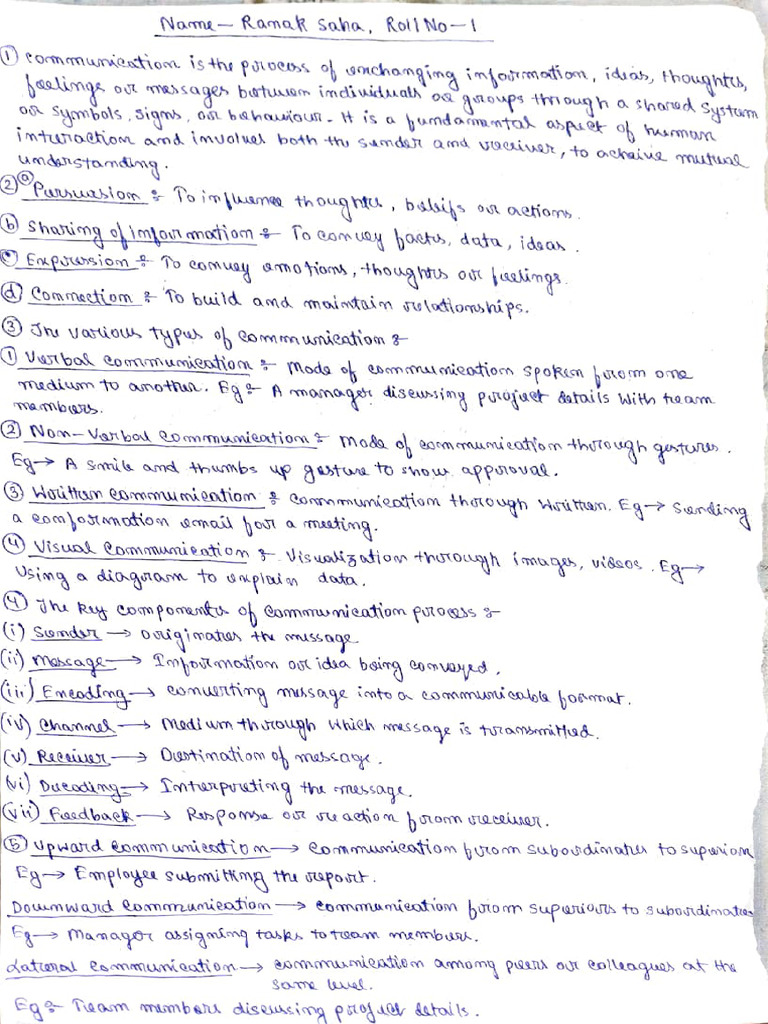 Name - Ranak Saha, Roll No - 1
① Communication is the process of exchanging information, ideas, thoughts,
feelings or messages between individuals or groups through a shared system
or symbols, signs, or behaviour. It is a fundamental aspect of human
interaction and involves both the sender and receiver, to acheive mutual
understanding.
② ⓐ Persuasion :- To influence thoughts, beliefs or actions.
ⓑ Sharing of information :- To convey facts, data, ideas.
ⓒ Expression :- To convey emotions, thoughts or feelings.
ⓓ Connection :- To build and maintain relationships.
③ The various types of communication :-
① Verbal communication :- Mode of communication spoken from one
medium to another. Eg :- A manager discussing project details with team
members.
② Non-Verbal communication :- Mode of communication through gestures.
Eg → A smile and thumbs up gesture to show approval.
③ Written communication :- communication through written. Eg → Sending
a comformation email for a meeting.
④ Visual communication :- Visualization through images, videos. Eg →
Using a diagram to explain data.
④ The key components of communication process :-
(i) Sender → originates the message
(ii) Message → Information or idea being conveyed.
(iii) Encoding → converting message into a communicable format.
(iv) Channel → Medium through which message is transmitted.
(v) Receiver → Destination of message.
(vi) Decoding → Interpreting the message.
(vii) Feedback → Response or reaction from receiver.
⑤ Upward communication → communication from subordinates to superiors
Eg → Employee submitting the report.
Downward communication → communication from superiors to subordinates
Eg → Manager assigning tasks to team members.
Lateral communication → communication among peers or colleagues at the
same level.
Eg :- Team members discussing project details.